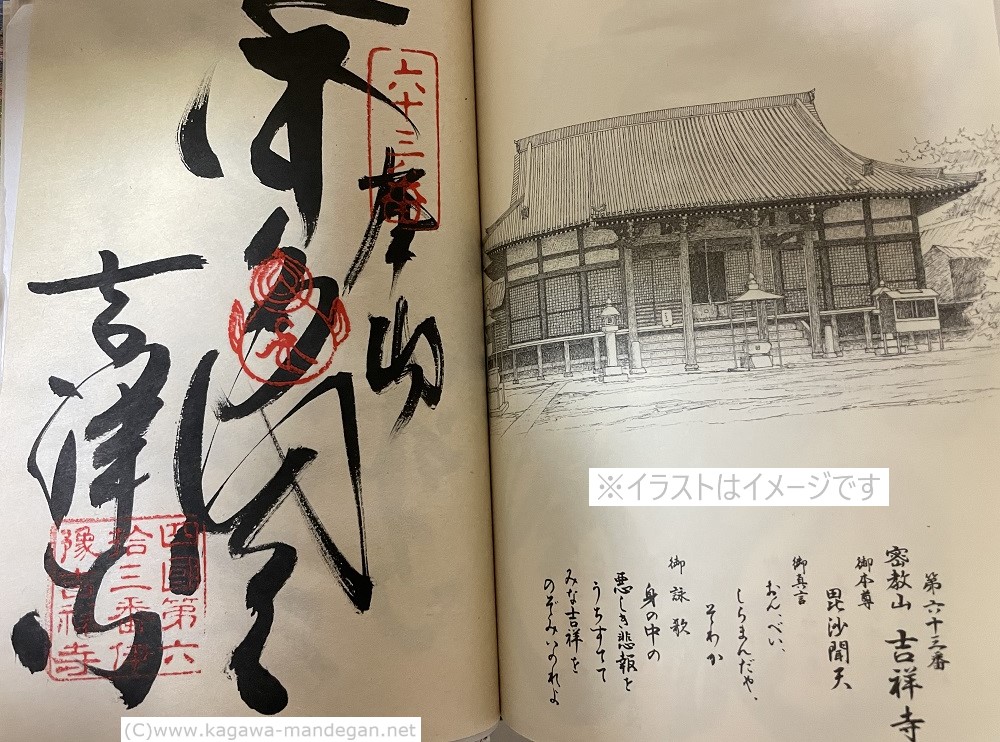 第六十三番
密教山 吉祥寺
御本尊
毘沙聞天
御真言
おん、べい、
しらまんだや、
そわか
御詠歌
身の中の
悪しき悲報を
うちすてて
みな吉祥を
のぞみいのれよ
※イラストはイメージです
六十三番
吉祥寺
四國第六
拾三番伊
豫吉祥寺
(C)www.kagawa-mandegan.net